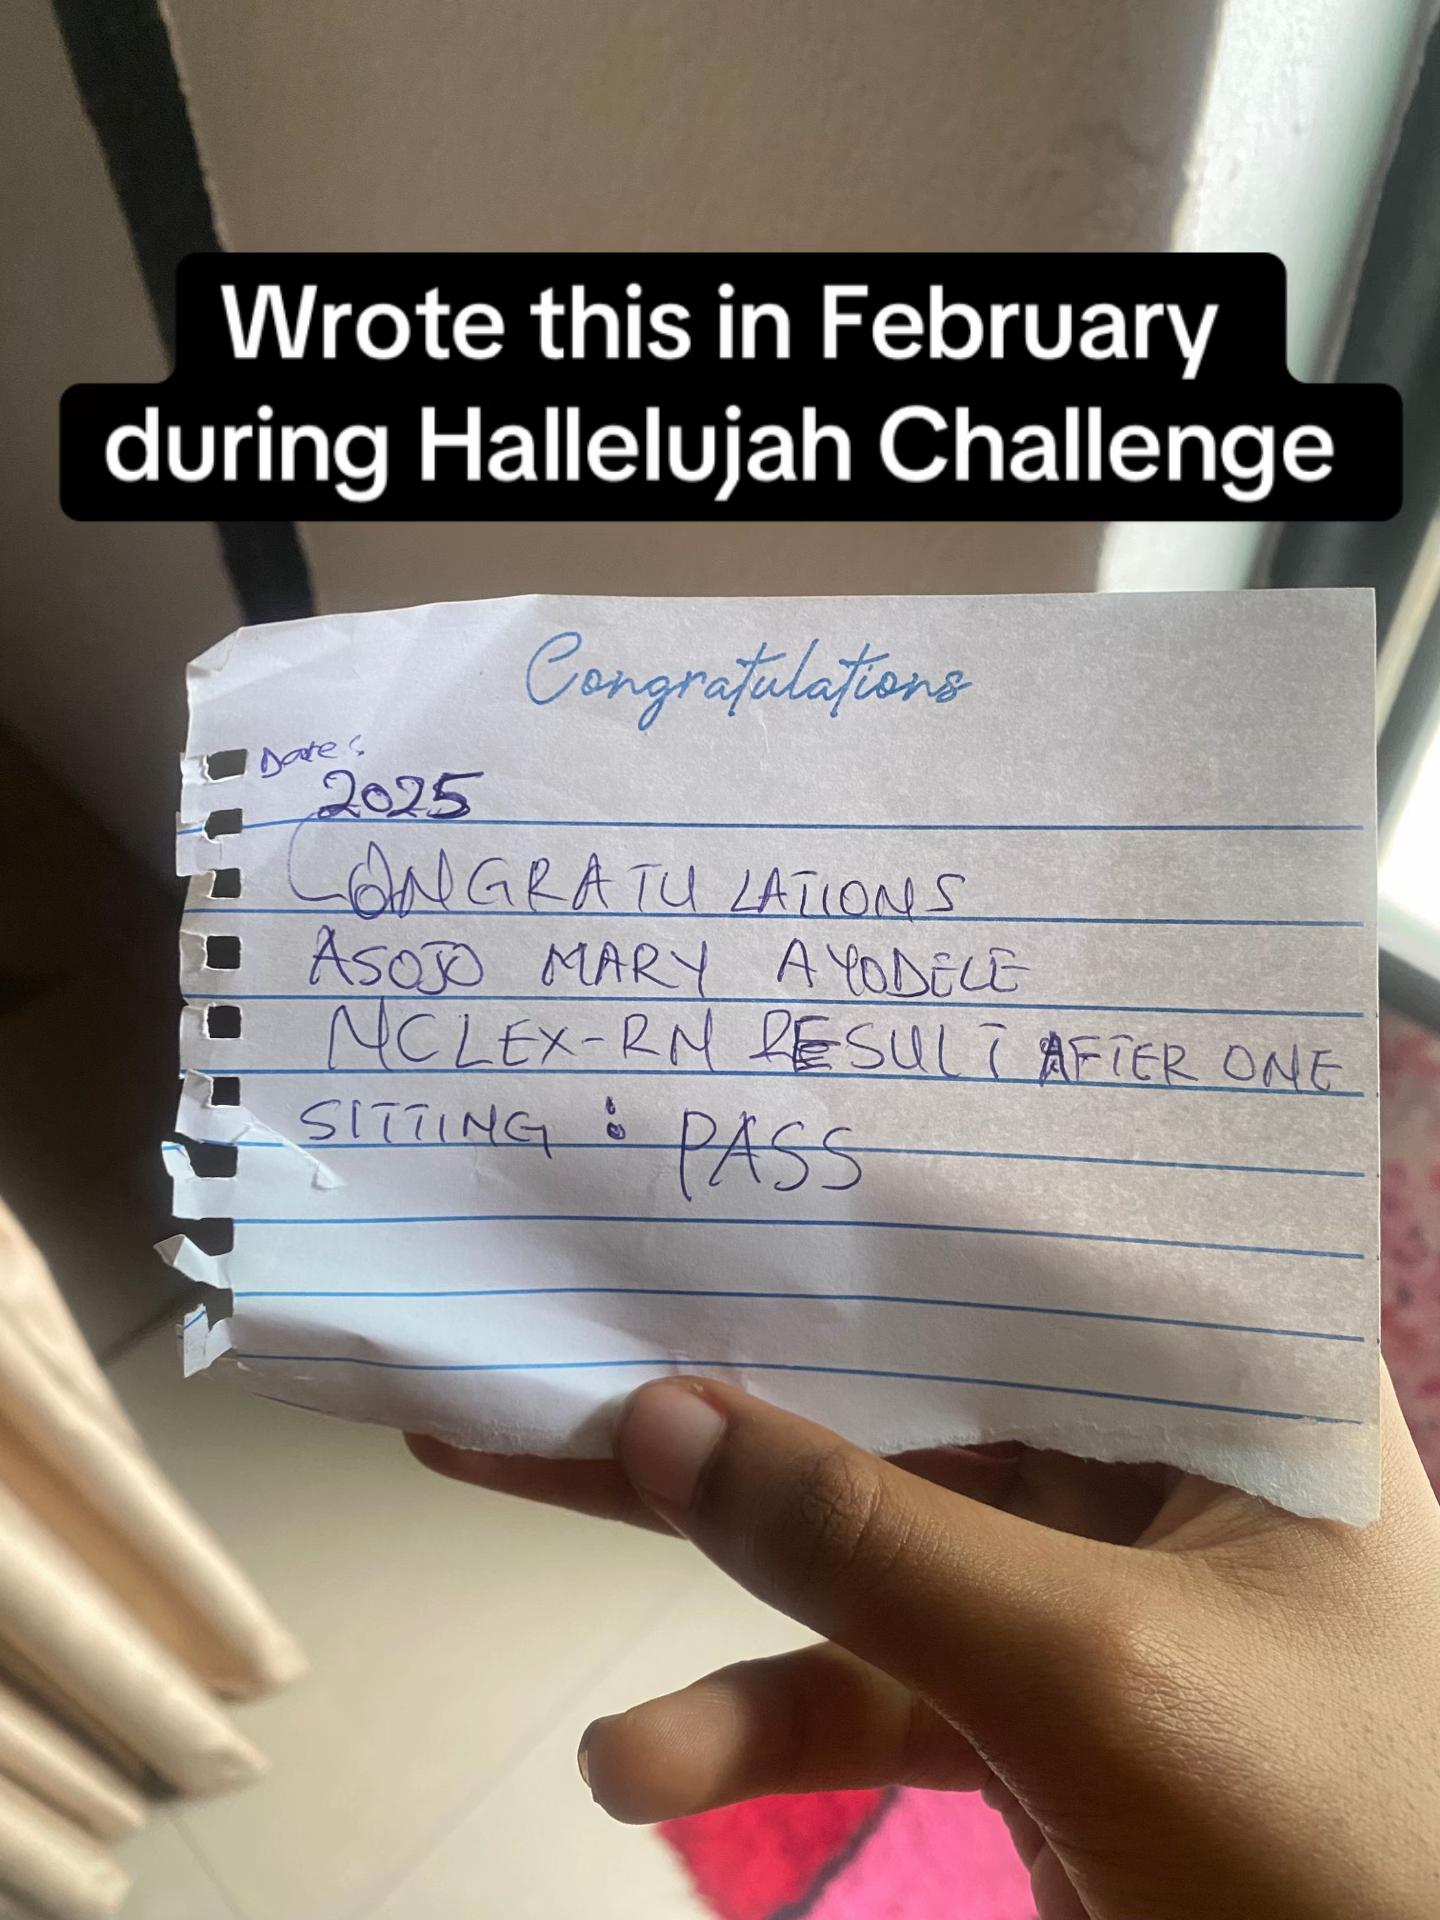 Wrote this in February
during Hallelujah Challenge
Congratulations
Date:
2025
CONGRATULATIONS
ASOJO MARY AYODELE
NCLEX-RN RESULT AFTER ONE
SITTING : PASS